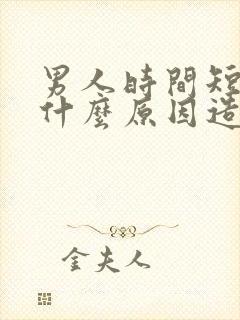 男人時間短
什麼原因造
金夫人